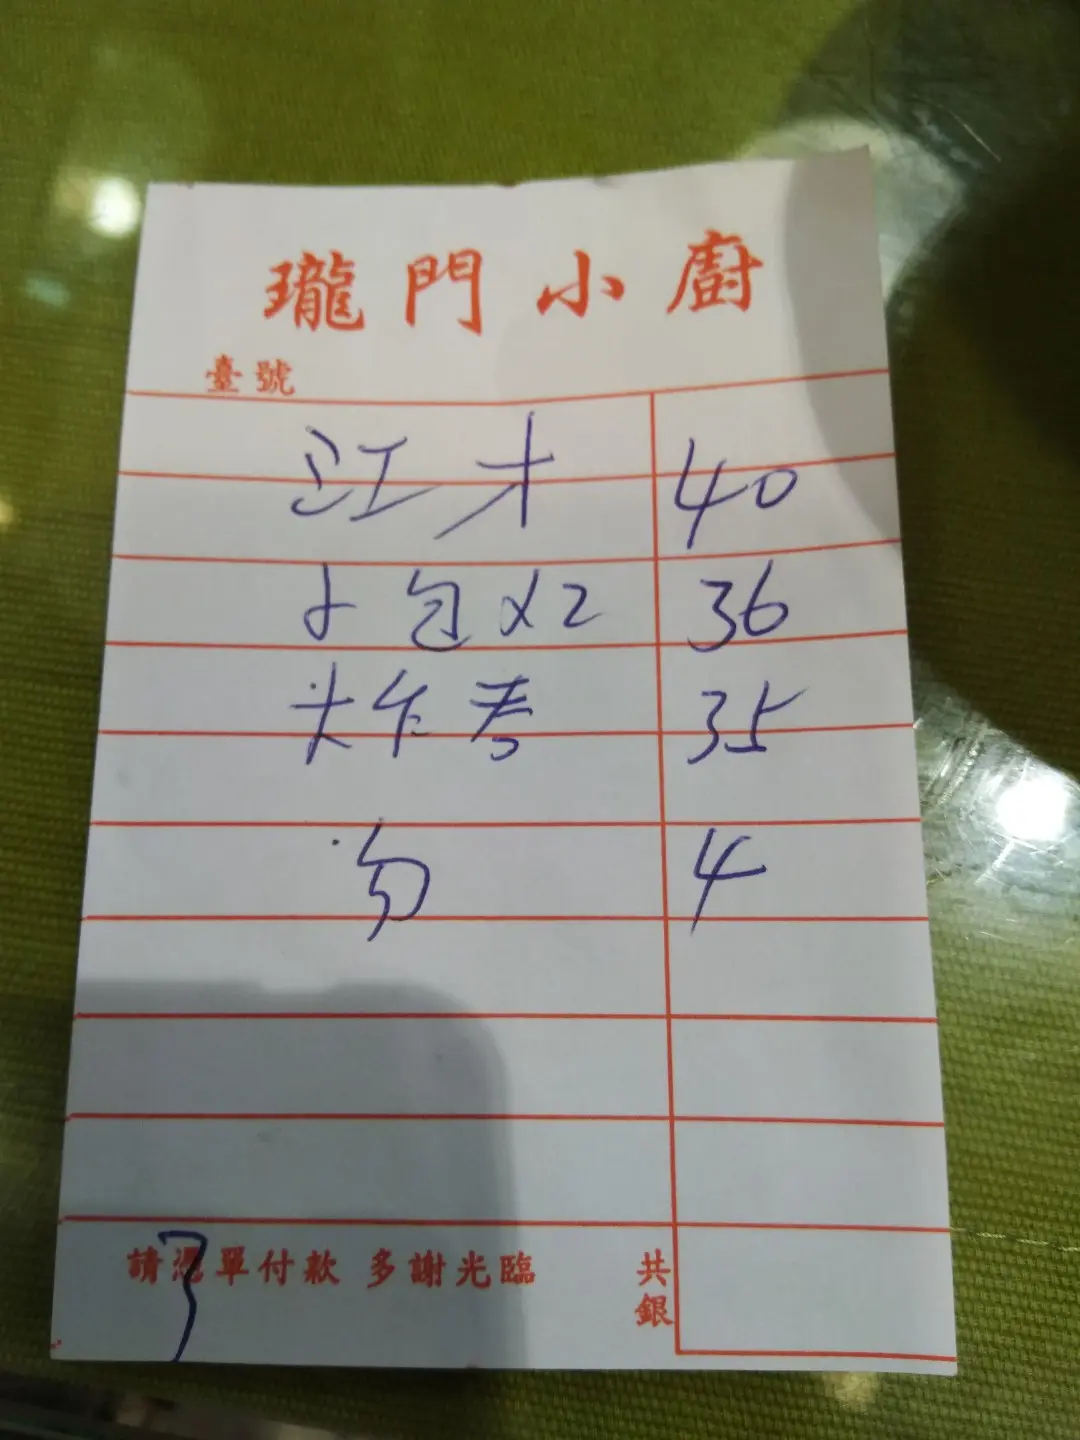 瓏門小廚
臺號
江才 40
小包x2 36
炸 35
勺 4
請憑單付款 多謝光臨 共銀